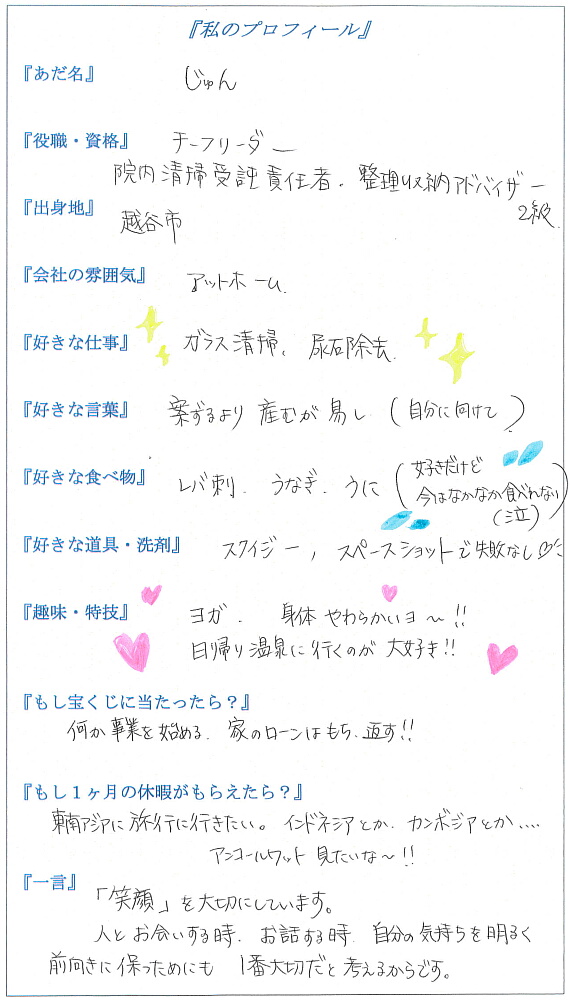 『私のプロフィール』
『あだ名』 じゅん
『役職・資格』 チーフリーダー
院内清掃受託責任者、整理収納アドバイザー
2級
『出身地』 越谷市
『会社の雰囲気』 アットホーム
『好きな仕事』 ガラス清掃、尿石除去
『好きな言葉』 案ずるより産むが易し(自分に向けて)
『好きな食べ物』 レバ刺、うなぎ、うに(好きだけど
今はなかなか食べれない
(泣))
『好きな道具・洗剤』 スクイジー、スペースショットで失敗なし♡
『趣味・特技』 ヨガ、身体やわらかいヨ~!!
日帰り温泉に行くのが大好き!!
『もし宝くじに当たったら?』
何か事業を始める、家のローンはもち、返す!!
『もし1ヶ月の休暇がもらえたら?』
東南アジアに旅行に行きたい。インドネシアとか、カンボジアとか....
アンコールワット見たいな~!!
『一言』
「笑顔」を大切にしています。
人とお会いする時、お話する時、自分の気持ちを明るく
前向きに保っためにも 1番大切だと考えるからです。